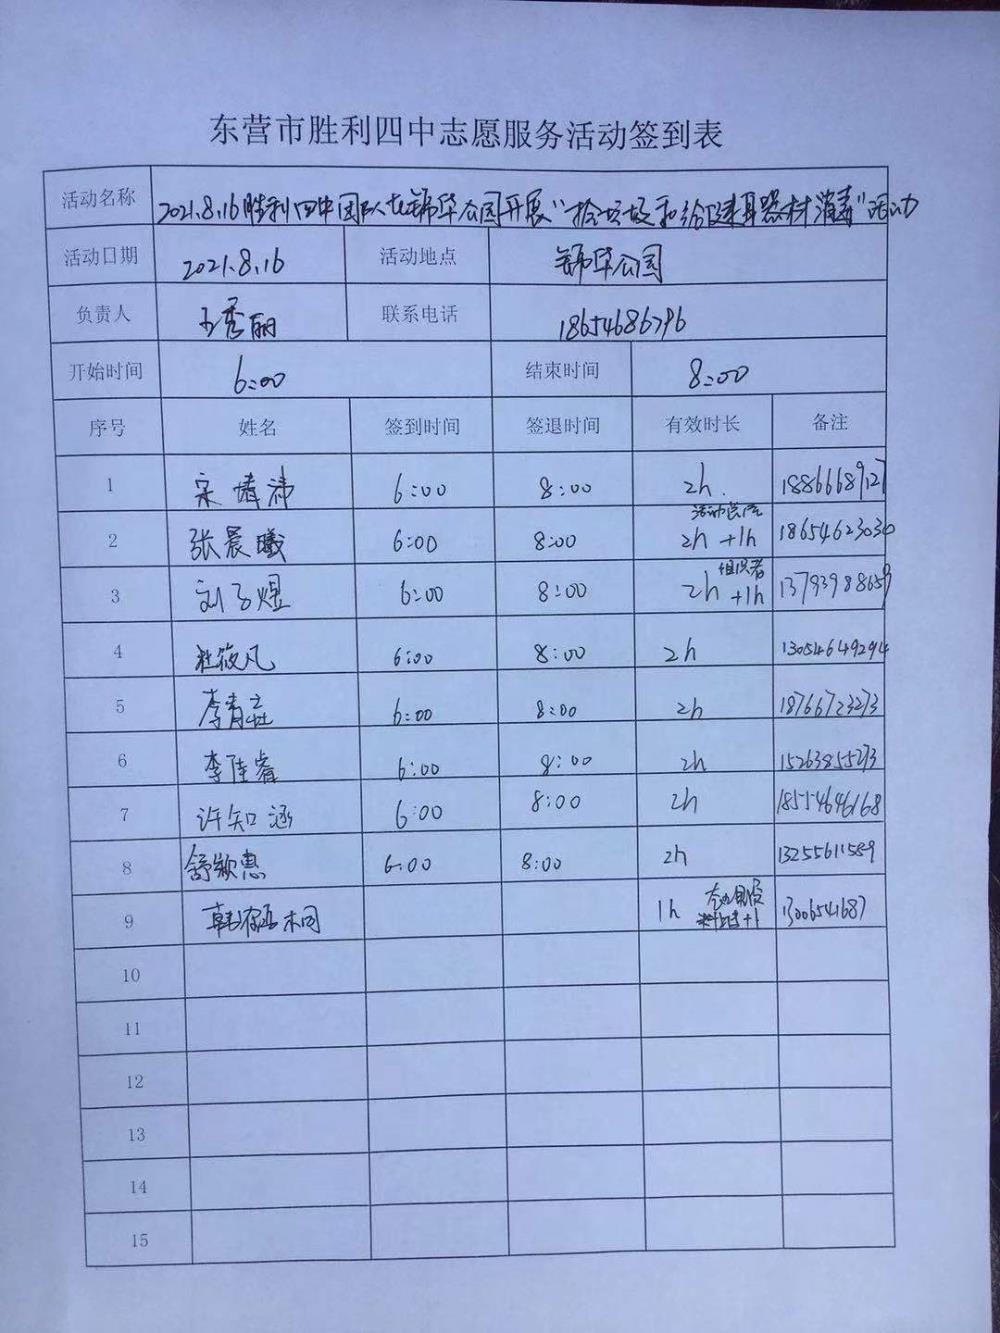 东营市胜利四中志愿服务活动签到表
活动名称 2021.8.16胜利四中团队在锦华公园开展"捡垃圾和给健身器材消毒"活动
活动日期 2021.8.16 活动地点 锦华公园
负责人 王秀丽 联系电话 18654686796
开始时间 6:00 结束时间 8:00
序号 姓名 签到时间 签退时间 有效时长 备注
1 6:00 8:00 2h. 18866689127
2 张晨曦 6:00 8:00 2h +1h 18654623030
3 刘子煜 6:00 8:00 2h 组织者 +1h 13793988659
4 杜筱凡 6:00 8:00 2h 13054649294
5 6:00 8:00 2h 18766723273
6 李佳睿 6:00 8:00 2h 15263855273
7 许知涵 6:00 8:00 2h 18554646168
8 舒颖惠 6:00 8:00 2h 13255611589
9 1h +1 13006541687
10
11
12
13
14
15